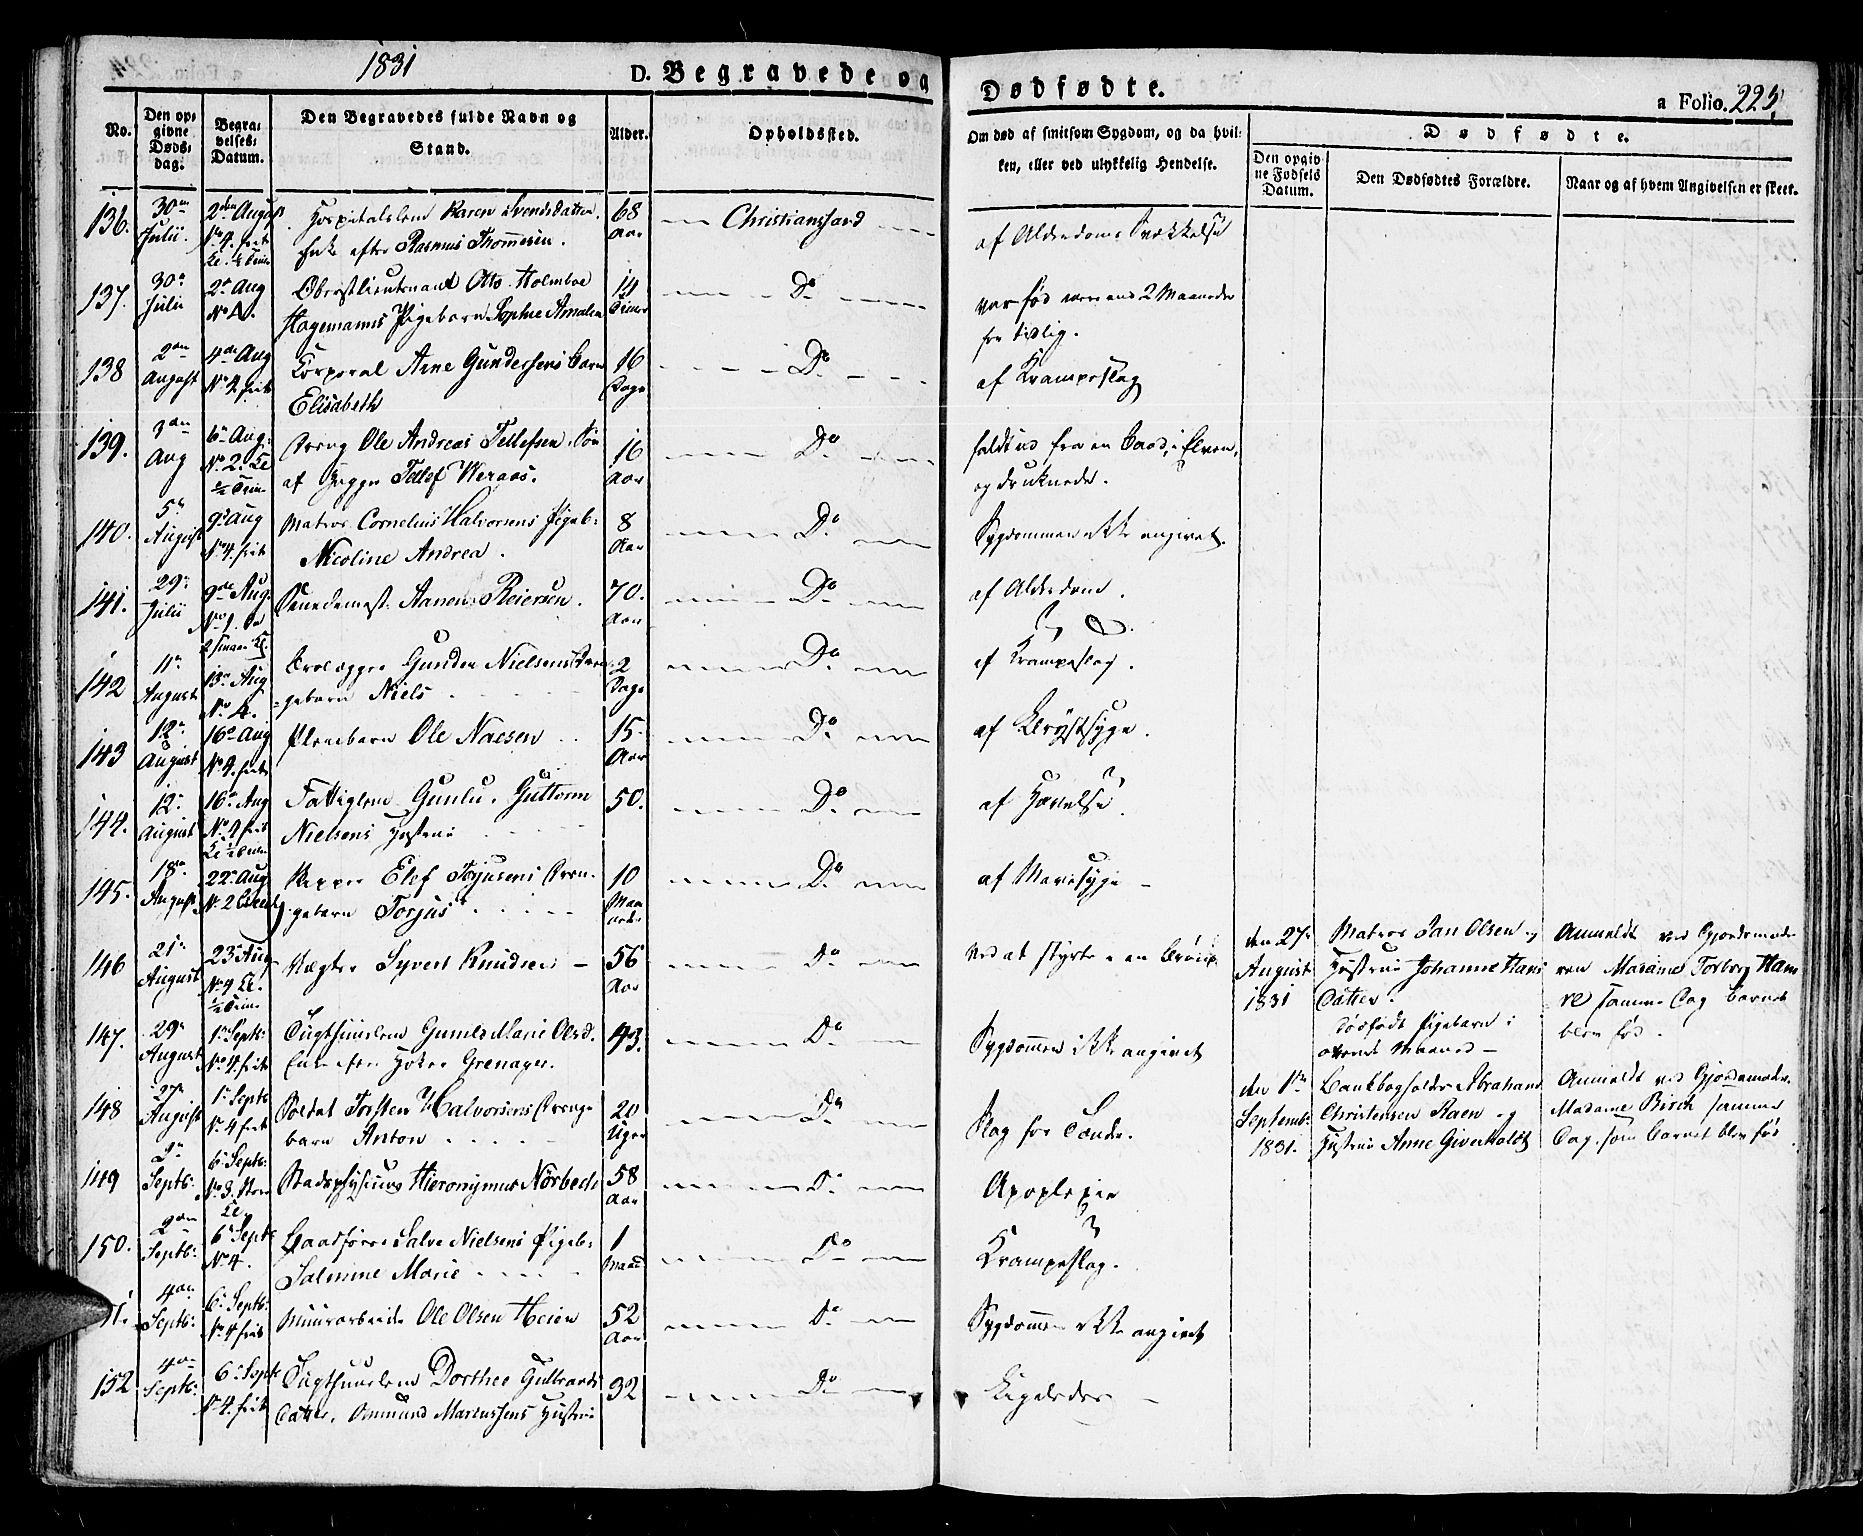 1831
D. Begravede og
Dødfødte.
a Folio. 225
No.
Den opgivne Døds-dag.
Begravelses-Datum.
Den Begravedes fulde Navn og Stand.
Alder.
Opholdssted.
Om død af smitsom Sygdom, og da hvilken, eller ved ulykkelig Hendelse.
Dødfødte.
Den opgivne Fødsels Datum.
Den Dødfødtes Forældre.
Naar og af hvem Angivelsen er skeet.
136. 30te Julii. 2den August No 4. frit Hospitalslem Karen Svendsdatter, 68 Aar Christianssand af Alderdoms Svækkelse
Enke efter Rasmus Thommesen.
137. 30te Julii 2de Aug No 4. Oberstlieutenant Otto Holmboe 14 Timer Do var fød mere end 2 Maaneder
Hagemanns Pigebarn Sophie Amalia for tidlig.
138 2den August 4de Aug No 4. frit Corporal Arne Gundersens Barn 16 Dage Do af Krampeslag
Elisabeth
139. 3die Aug 6te Aug. No 2. Dreng Ole Andreas Tellefsen, Søn 16 Aar Do faldt ud fra en Baad i Elven,
af Tellef Weraas. og druknede.
140. 5te August 9de Aug No 4. frit Matros Cornelius Halvorsens Pigeb: 8 Aar Do Sygdommen ikke angivet.
Nicoline Andrea.
141. 29de Julii 9de Aug. No 1. Aanen Reiersen. 70. Aar Do af Alderdom.
142 11te August 13de Aug No 4. Gunder Nielsens Drengebarn Niels 2 Dage Do af Krampeslag.
143 12te August 16de Aug No 4. frit Pleiebarn Ole Naesen 15 Aar Do af Brystsyge.
144. 12te August 16de Aug No 4 frit Fattiglem Gunlu, Guttorm 50. Do af Hævelse.
Nielsens Hustrue
145. 18de August 22de Aug No 2 Skipper Elef Torjusens Drengebarn Torjus 10 Maaneder Do af Mavesyge
146 21de August 23de Aug No 4 Syvert Knudsen 56 Aar Do ved at styrte i en Brønd
147. 29de August 1te Septb: No 4. frit Tugthuuslem Gunild Marie Olsd. 43. Do Sygdommen ikke angivet
Enke efter Grenager.
148 27de August 1te Septb No 4 frit Soldat Torsten Halvorsens Drengebarn Anton 20 Uger Do Slag for Tænder.
149 2de Septb: 6te Septb: No 3. Stadsphysicus Hieronymus Nørbech 58 Aar Do Apoplexie
150. 2den Septb: 6te Septb No 4. Baadfører Salve Nielsens Pigeb: 1 Maaned Do Krampeslag.
Salmine Marie
4de Septb: 6te Septb: No 4 frit Muurarbeider Ole Olsen Heien 52 Aar Do Sygdommen ikke angivet
152 4de Septb: 6te Septb No 4. frit Tugthuuslem Dorthee Gulbrandsdatter, Omund Martensens Hustrue 32 Do
den 27de August 1831
Matros Jan Olsen og Hustrue Johanne Hansdatter.
dødfødt Pigebarn i ottende Maaned
Anmeldt ved Gjordemoderen Madame Torborg Hansen samme Dag Barnet blev fød.
den 1te Septemb: 1831.
Bankbogholder Abraham Christensen Raen og Hustrue Anne Giverholdt
Anmeldt ved Gjordemoder Madame Birch samme Dag, som Barnet blev fød